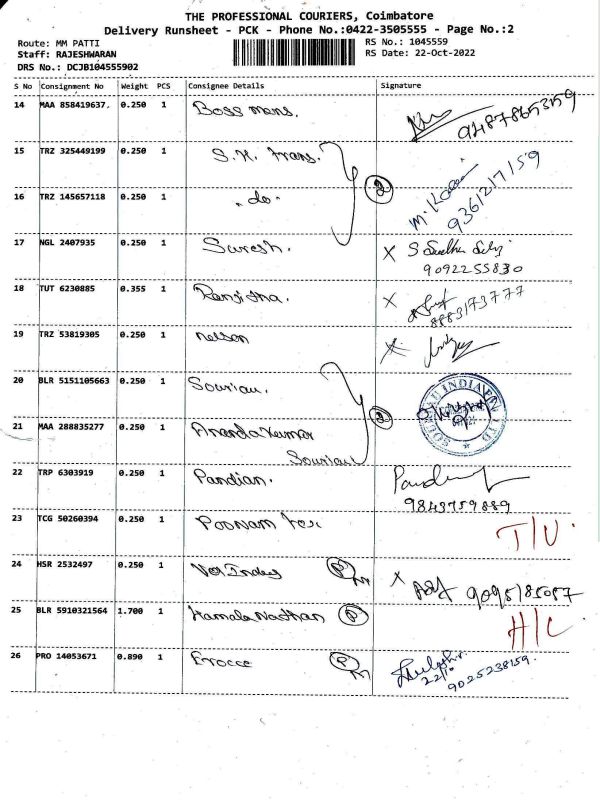 THE PROFESSIONAL COURIERS, Coimbatore
Delivery Runsheet - PCK - Phone No.:0422-3505555 - Page No.:2
Route: MM PATTI RS No.: 1045559
Staff: RAJESHWARAN RS Date: 22-Oct-2022
DRS No.: DCJB104555902
S No Consignment No Weight PCS Consignee Details Signature
14 MAA 858419637. 0.250 1 Boss mens.
9487865359
15 TRZ 325449199 0.250 1 S.K. trans.
2
16 TRZ 145657118 0.250 1 "do" M. 9361217159
17 NGL 2407935 0.250 1 Suresh. X S
9092255830
18 TUT 6230885 0.355 1 X
8883173777
19 TRZ 53819305 0.250 1 nelson X
20 BLR 5151105663 0.250 1 Souriau.
2
21 MAA 288835277 0.250 1 Ananda Kumar
Souriau
22 TRP 6303919 0.250 1 Pandian.
9843759889
23 TCG 50260394 0.250 1 Poonam T/U
24 HSR 2532497 0.250 1 P X 9095185087
25 BLR 5910321564 1.700 1 P H/C
26 PRO 14053671 0.890 1 P
22/10
9025238159.